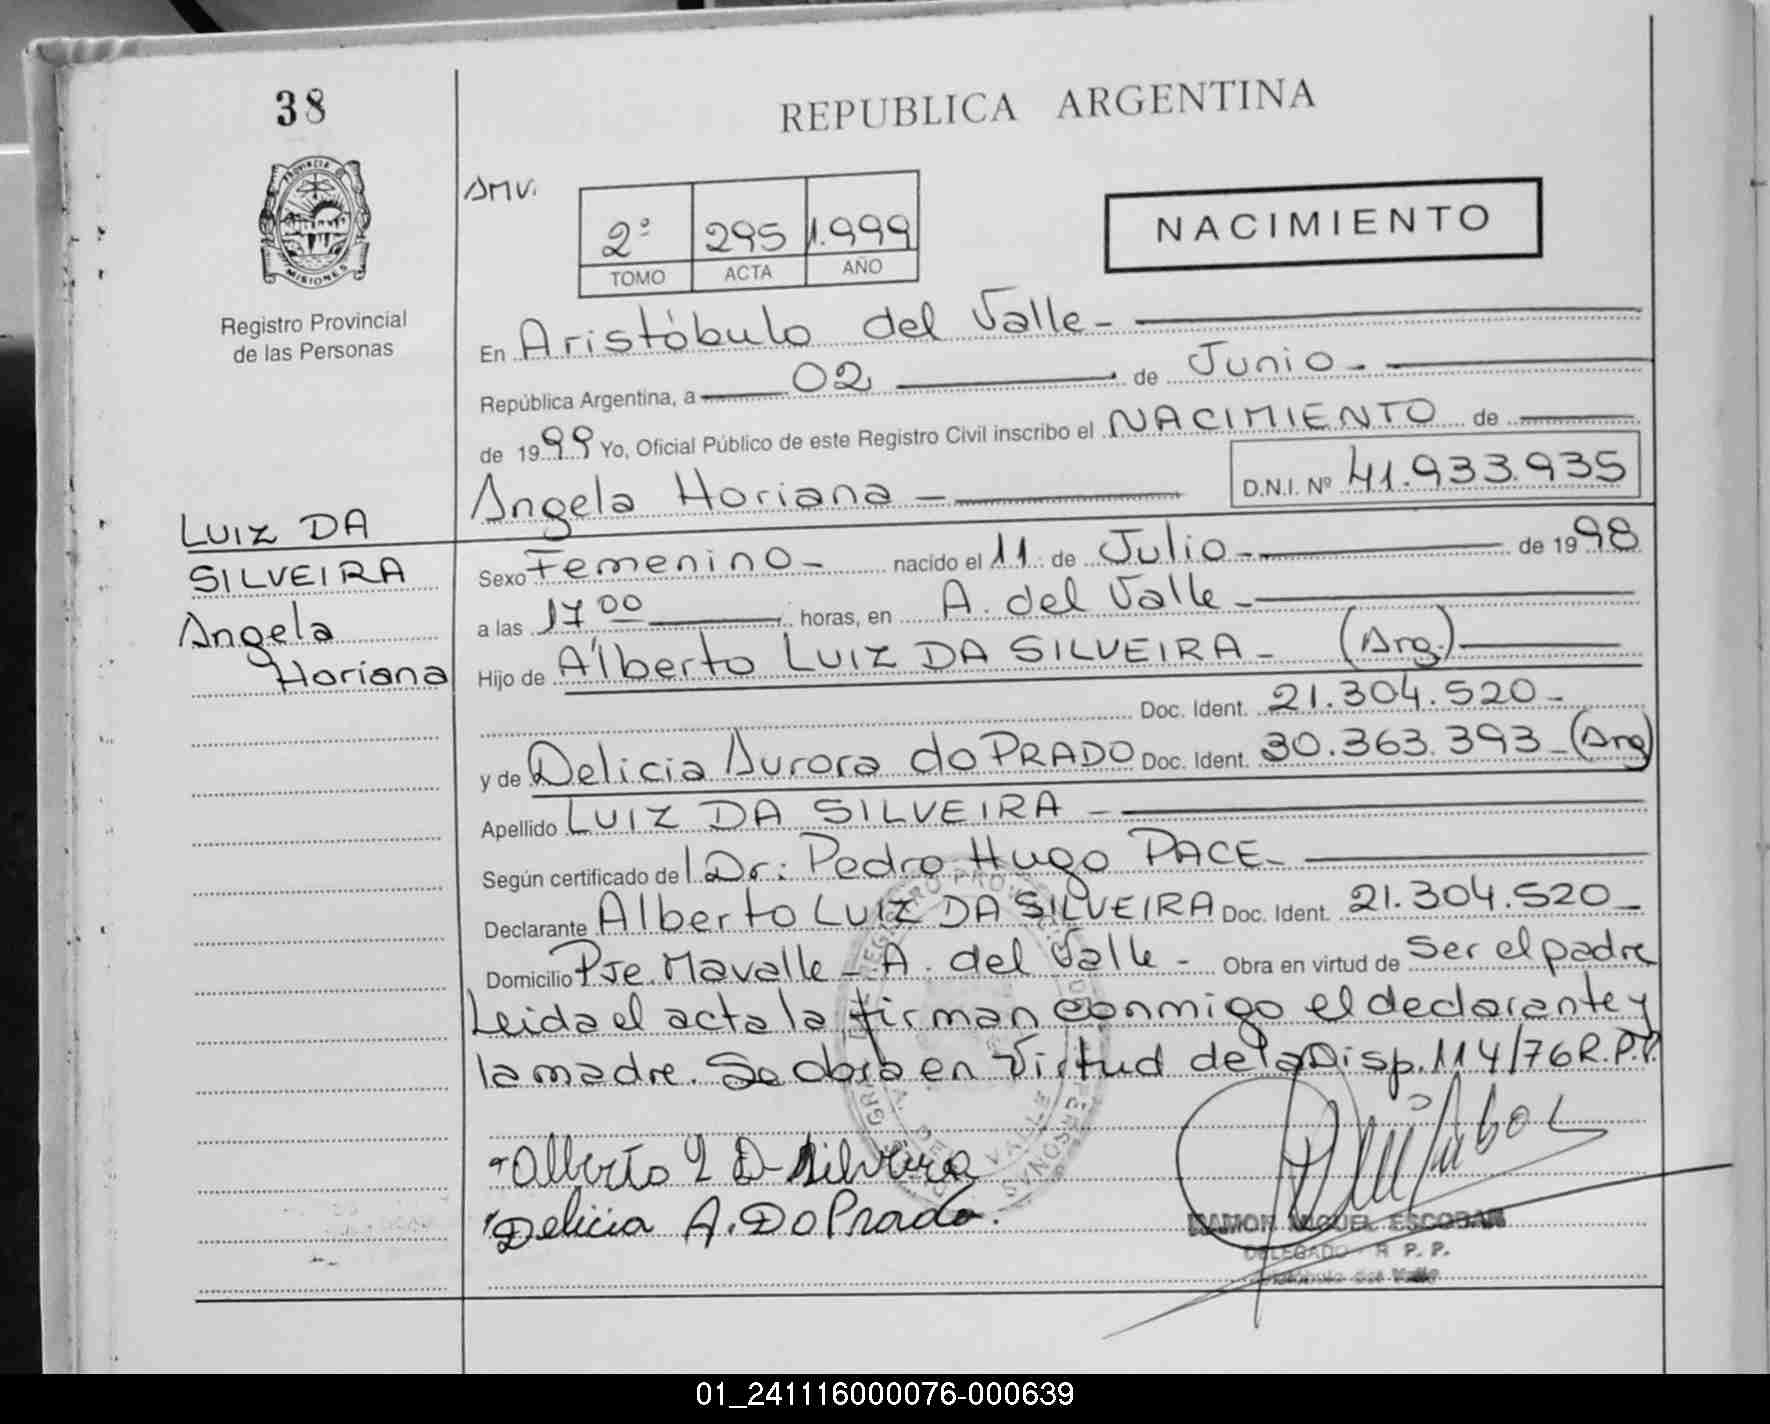 38
REPUBLICA ARGENTINA
PROVINCIA
MISIONES
Registro Provincial
de las Personas
2º 295 1.999
TOMO ACTA AÑO
NACIMIENTO
En Aristóbulo del Valle -
República Argentina, a 02 de Junio -
de 1999 Yo, Oficial Público de este Registro Civil inscribo el NACIMIENTO de
Angela Horiana - D.N.I. Nº 41.933.935
LUIZ DA
SILVEIRA
Angela
Horiana
Sexo Femenino - nacido el 11 de Julio - de 1998
a las 17 00 horas, en A. del Valle -
Hijo de Alberto LUIZ DA SILVEIRA - (Arg.)
Doc. Ident. 21.304.520 -
y de Delicia Aurora do PRADO Doc. Ident. 30.363.393 - (Arg)
Apellido LUIZ DA SILVEIRA -
Según certificado del Dr: Pedro Hugo PACE -
Declarante Alberto LUIZ DA SILVEIRA Doc. Ident. 21.304.520 -
Domicilio Pje. Mavalle - A. del Valle - Obra en virtud de Ser el padre
Leida el acta la firman conmigo el declarante y
la madre. Se obra en Virtud de la Disp. 114/76 R.P.P.
Alberto L D Silveira
Delicia A. Do Prado.
RAMON MIGUEL ESCOBAR
DELEGADO R P. P.
Aristóbulo del Valle
01_241116000076-000639